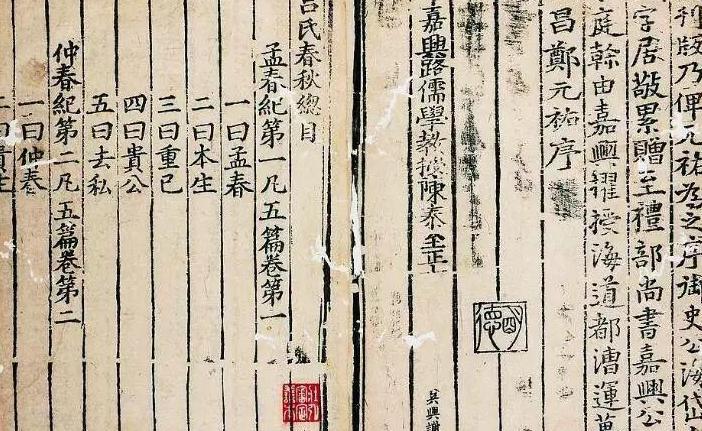 利版乃俾元祐為之序御史公海岱
字居敬累贈至禮部尚書嘉興公
庭幹由嘉興擢授海道都漕運萬
昌鄭元祐序
嘉興路儒學教授陳泰至正
吳興謝
呂氏春秋總目
孟春紀第一凡五篇卷第一
一曰孟春
二曰本生
三曰重己
四曰貴公
五曰去私
仲春紀第二凡五篇卷第二
一曰仲春
二曰貴生